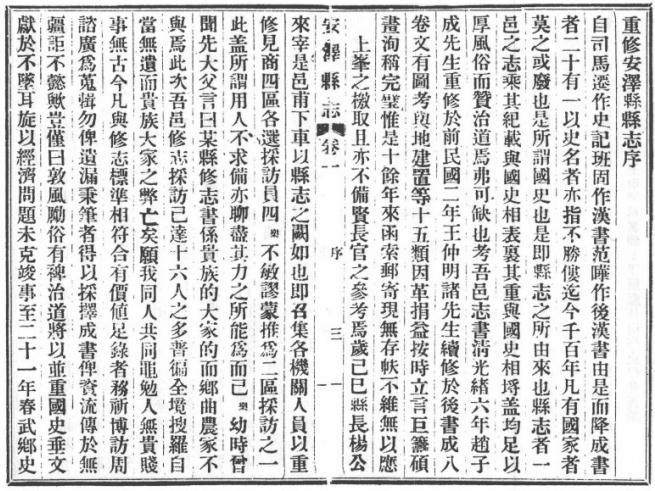 重修安澤縣縣志序
自司馬遷作史記班固作漢書范曄作後漢書由是而降成書
者二十有一以史名者亦指不勝僂迄今千百年凡有國家者
莫之或廢也是所謂國史也是即縣志之所由來也縣志者一
邑之志乘其紀載與國史相表裏其重與國史相埒盖均足以
厚風俗而贊治道焉弗可缺也考吾邑志書清光緒六年趙子
成先生重修於前民國二年王仲明諸先生續修於後書成八
卷文有圖考輿地建置等十五類因革損益按時立言巨纂碩
畫洵稱完璧惟是十餘年來函索郵寄現無存帙不維無以應
上峯之檄取且亦不備賢長官之參考焉歲己巳縣長楊公
安澤縣志
卷一
序
三
一
來宰是邑甫下車以縣志之闕如也即召集各機關人員以重
修見商四區各選採訪員四樂不敏謬蒙推爲二區採訪之一
此盖所謂用人不求備亦聊盡其力之所能爲而已樂幼時曾
聞先大父言曰某縣修志書係貴族的大家的而鄉曲農家不
與焉此次吾邑修志採訪已達十六人之多普徧全境搜羅自
當無遺而貴族大家之弊亡矣願我同人共同黽勉人無貴賤
事無古今凡與修志標準相符合有價値足錄者務祈博訪周
諮廣爲蒐輯勿俾遺漏秉筆者得以採擇成書俾資流傳於無
疆詎不懿歟豈僅曰敦風勵俗有裨治道將以並重國史垂文
獻於不墜耳旋以經濟問題未克竣事至二十一年春武鄉史